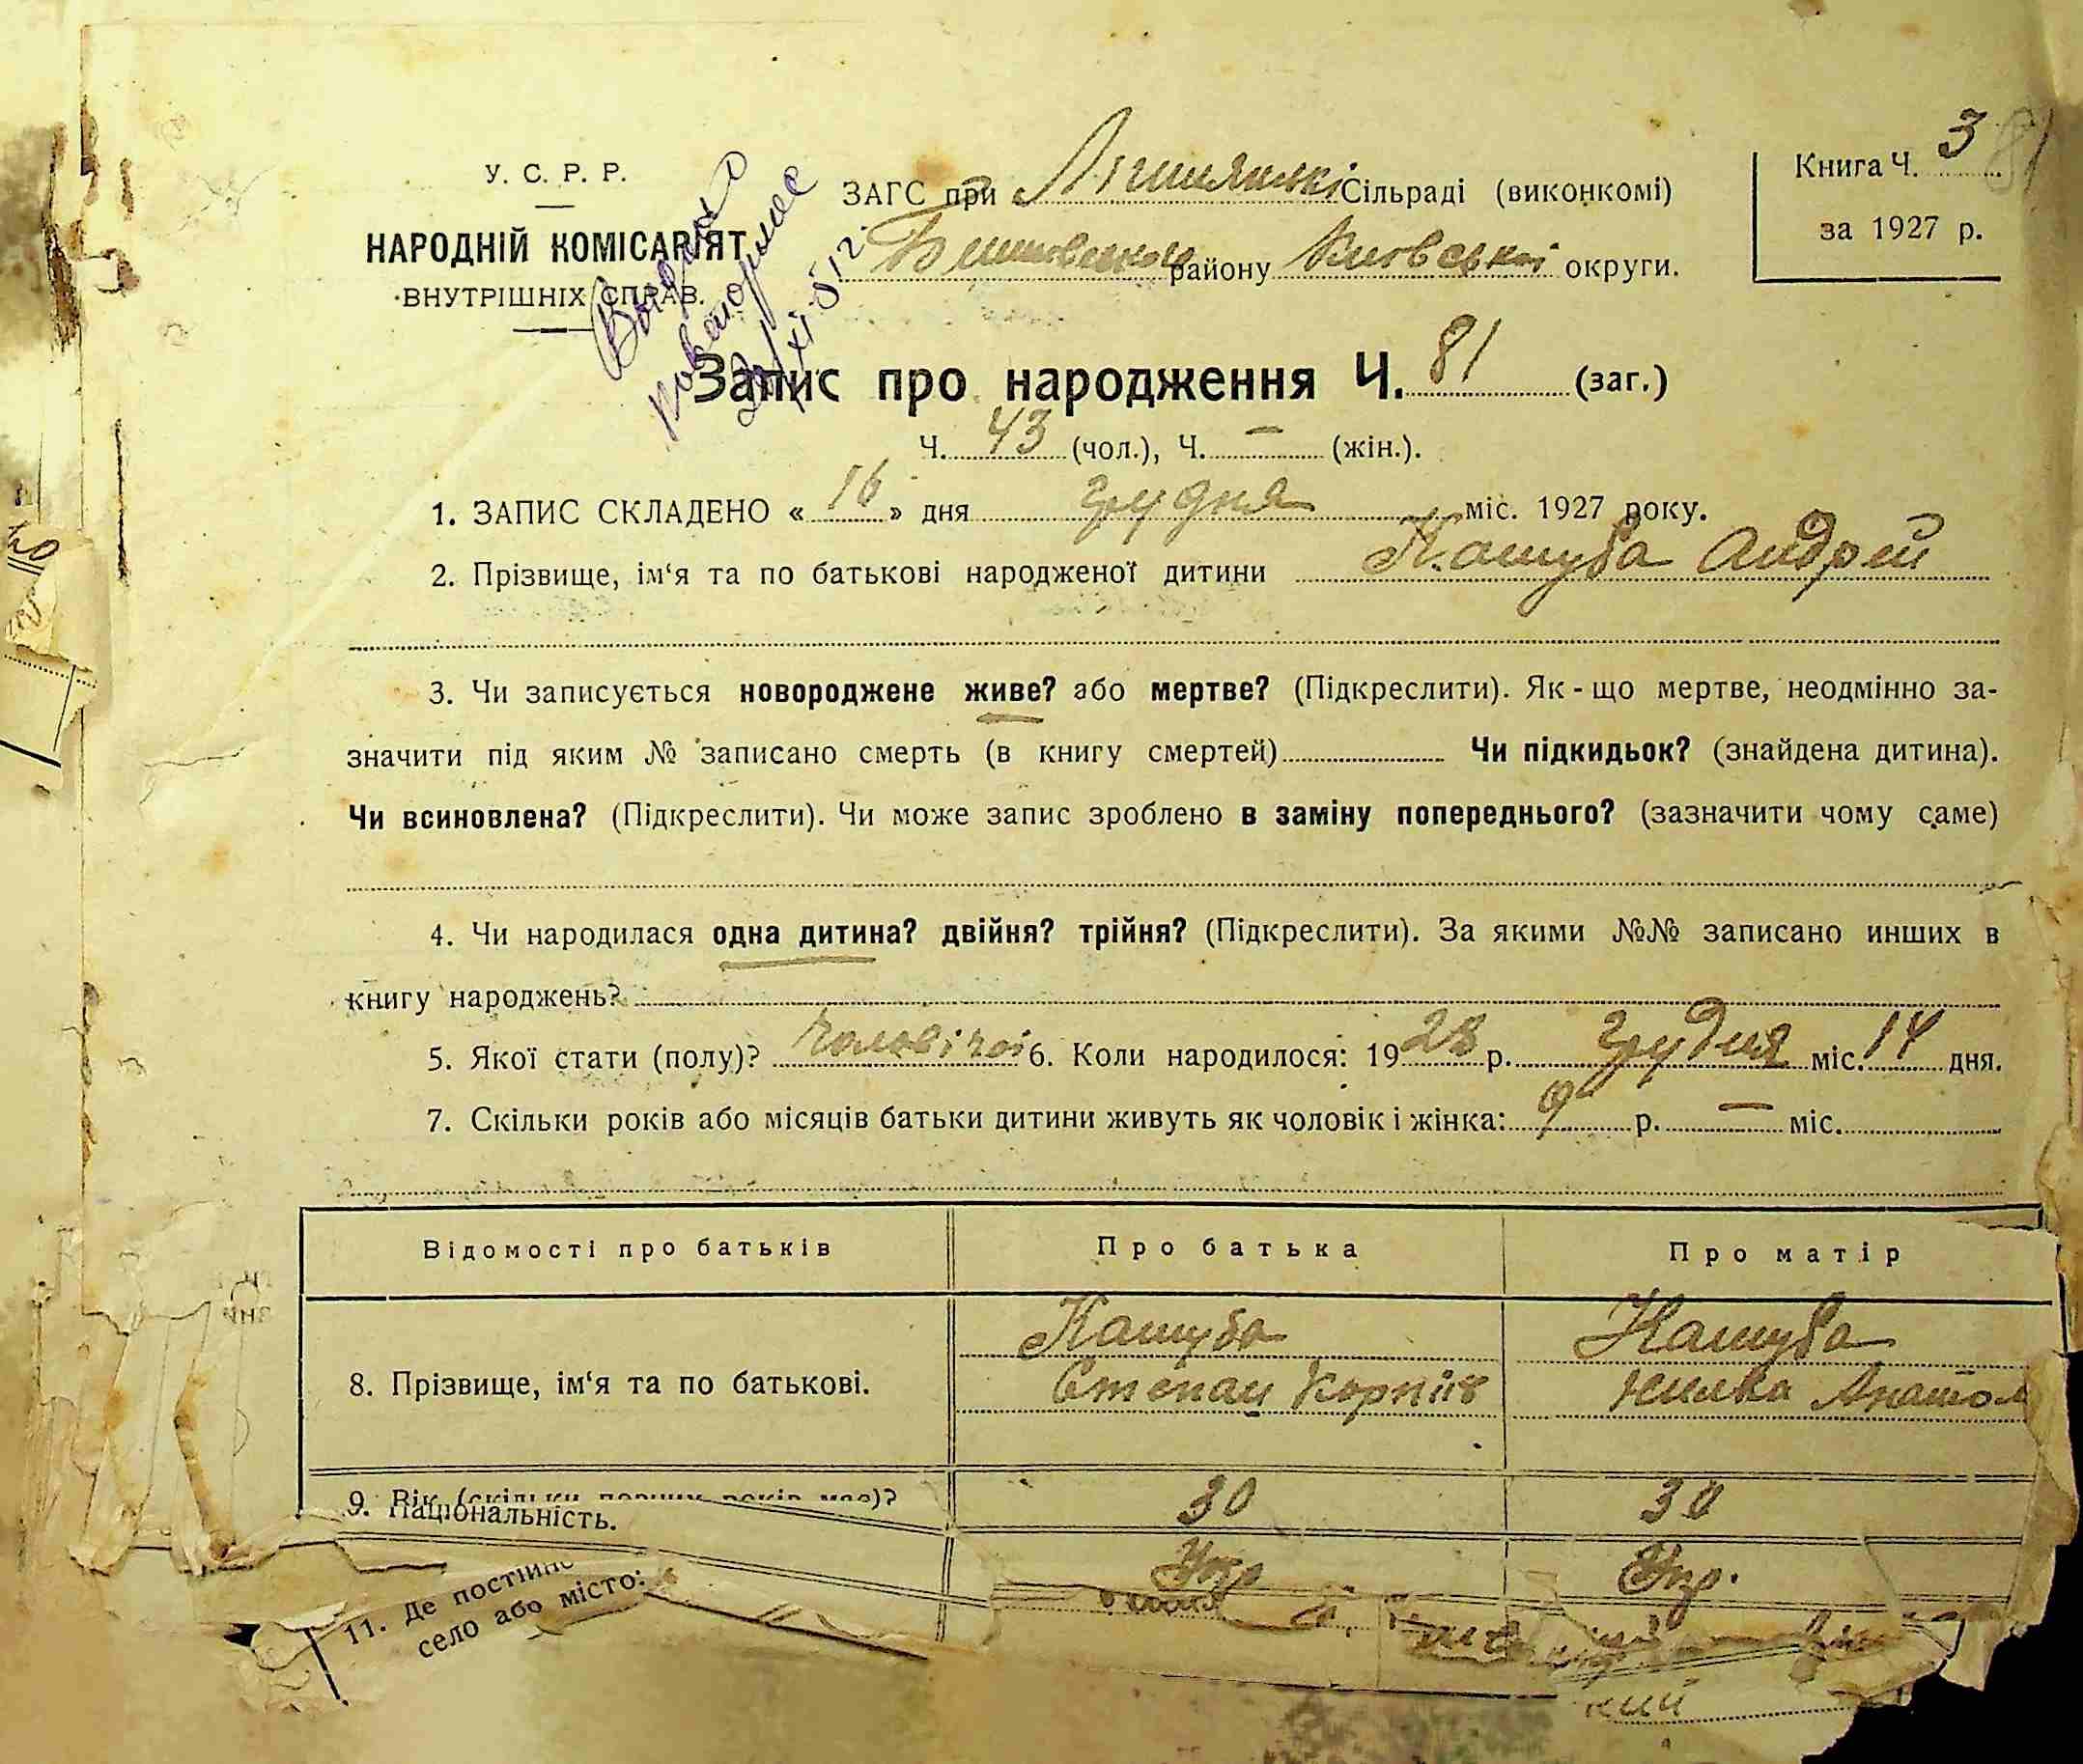 У. С. Р. Р.
НАРОДНІЙ КОМІСАРІЯТ
ВНУТРІШНІХ СПРАВ.
ЗАГС при Сільраді (виконкомі)
району Киевської округи.
Книга Ч. 3
за 1927 р.
81
Запис про народження Ч. 81 (заг.)
Ч. 43 (чол.), Ч. — (жін.).
1. ЗАПИС СКЛАДЕНО « 16 » дня грудня міс. 1927 року.
2. Прізвище, ім‘я та по батькові народженої дитини Кашуба Андрей
3. Чи записується новороджене живе? або мертве? (Підкреслити). Як-що мертве, неодмінно за-
значити під яким № записано смерть (в книгу смертей) Чи підкидьок? (знайдена дитина).
Чи всиновлена? (Підкреслити). Чи може запис зроблено в заміну попереднього? (зазначити чому саме)
4. Чи народилася одна дитина? двійня? трійня? (Підкреслити). За якими №№ записано инших в
книгу народжень?
5. Якої стати (полу)? чоловічої 6. Коли народилося: 1928 р. грудня міс. 14 дня.
7. Скільки років або місяців батьки дитини живуть як чоловік і жінка: 9 р. — міс.
Відомості про батьків Про батька Про матір
Кашуба Кашуба
8. Прізвище, ім‘я та по батькові. Степан Корпіїв
9. Вік (скільки повних років має)? 30 30
Національність. Укр Укр.
11. Де постійно
село або місто:
кий